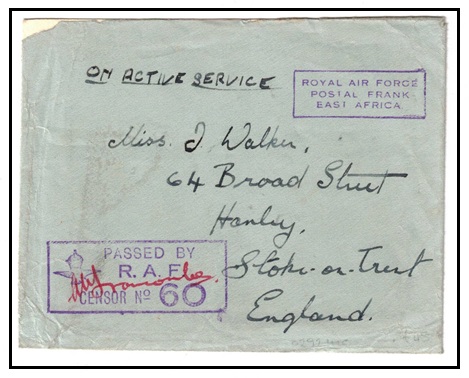 ON ACTIVE SERVICE
ROYAL AIR FORCE
POSTAL FRANK
EAST AFRICA.
Miss. J. Walker,
64 Broad Street
Hanley,
Stoke-on-Trent
England.
PASSED BY
R.A.F.
CENSOR Nº 60